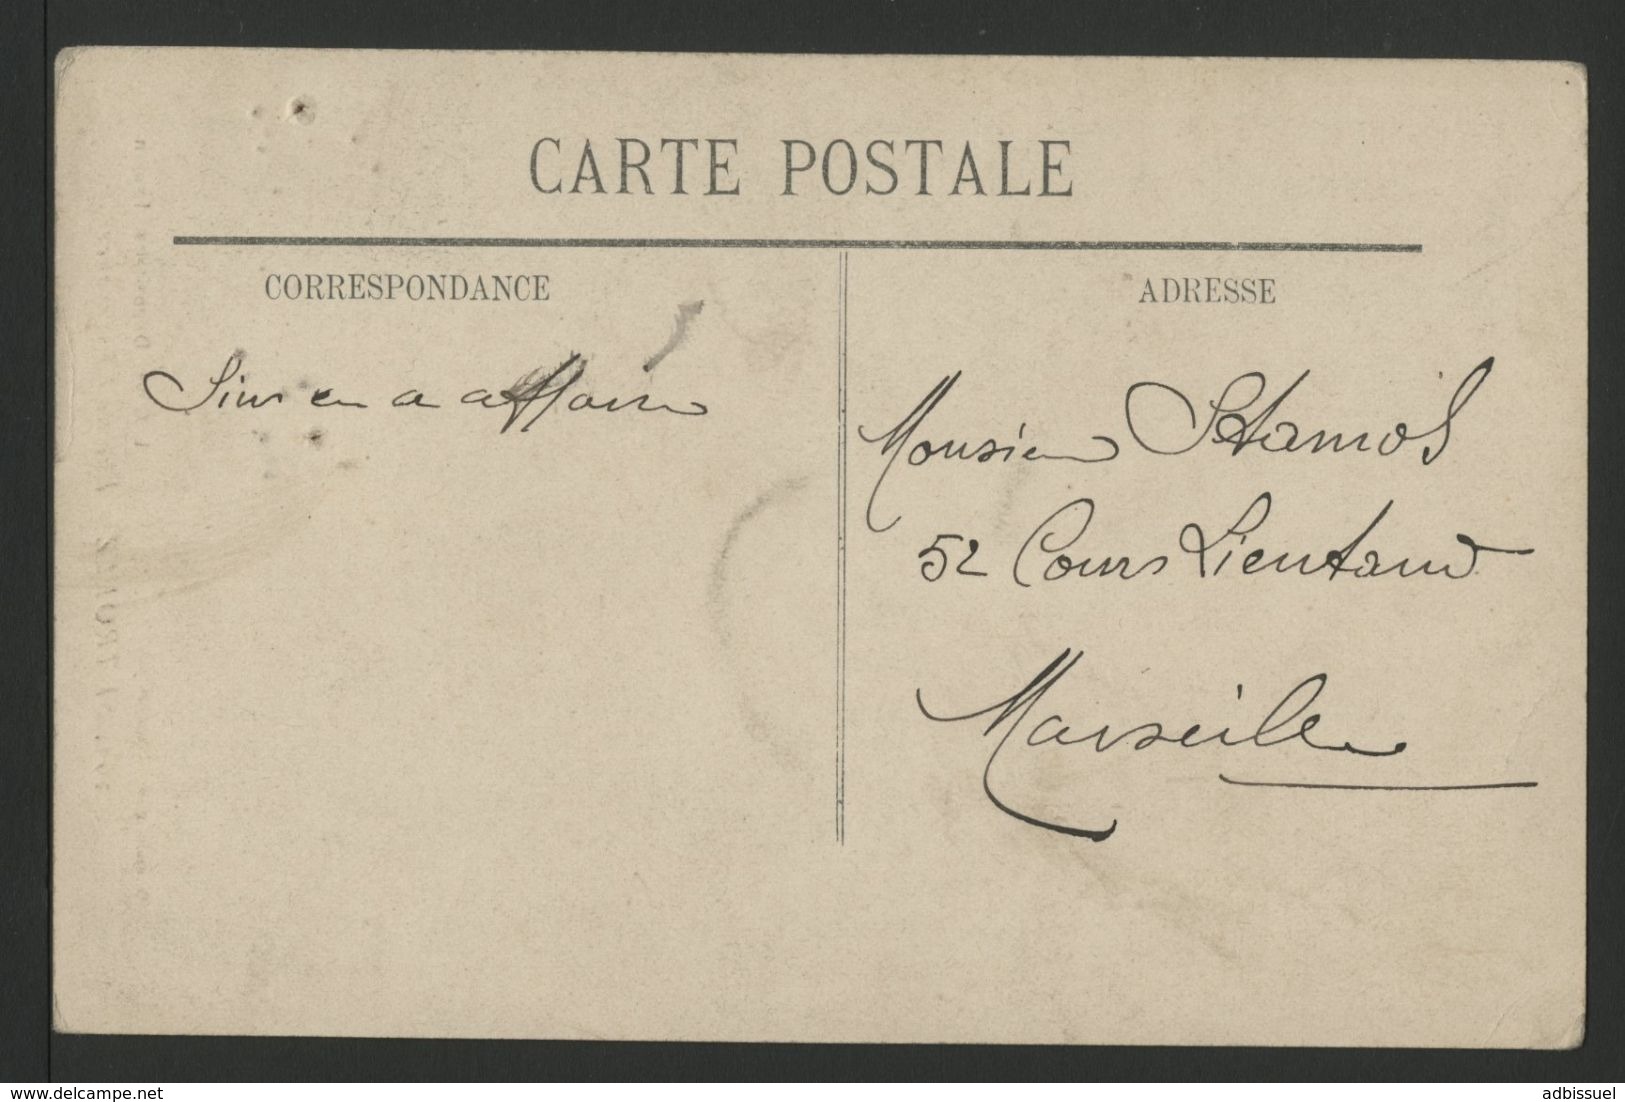 CARTE POSTALE
CORRESPONDANCE
ADRESSE
en a affaire
Monsieur Stamos
52 Cours Lieutaud
Marseille
www.delcampe.net
adbissuel